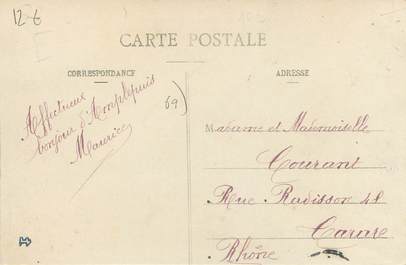 12-€
CARTE POSTALE
CORRESPONDANCE
ADRESSE
Affectueux
bonjour d'Amplepuis
Maurice
69)
Madame et Mademoiselle
Courant
Rue Radisson 48
Tarare
Rhône